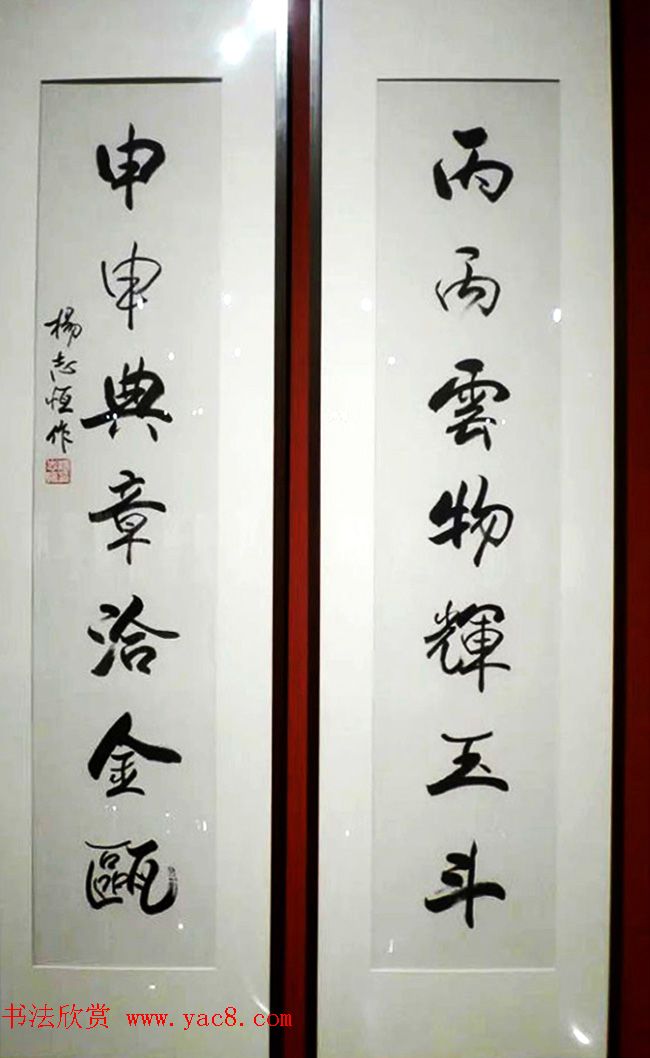 丙丙雲物輝玉斗
申申典章洽金甌
楊志恒作
书法欣赏 www.yac8.com